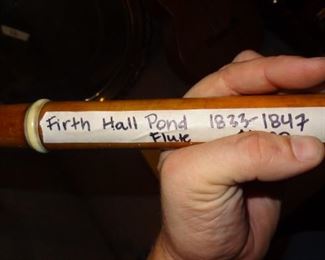 Firth Hall Pond 1833-1847
Flute